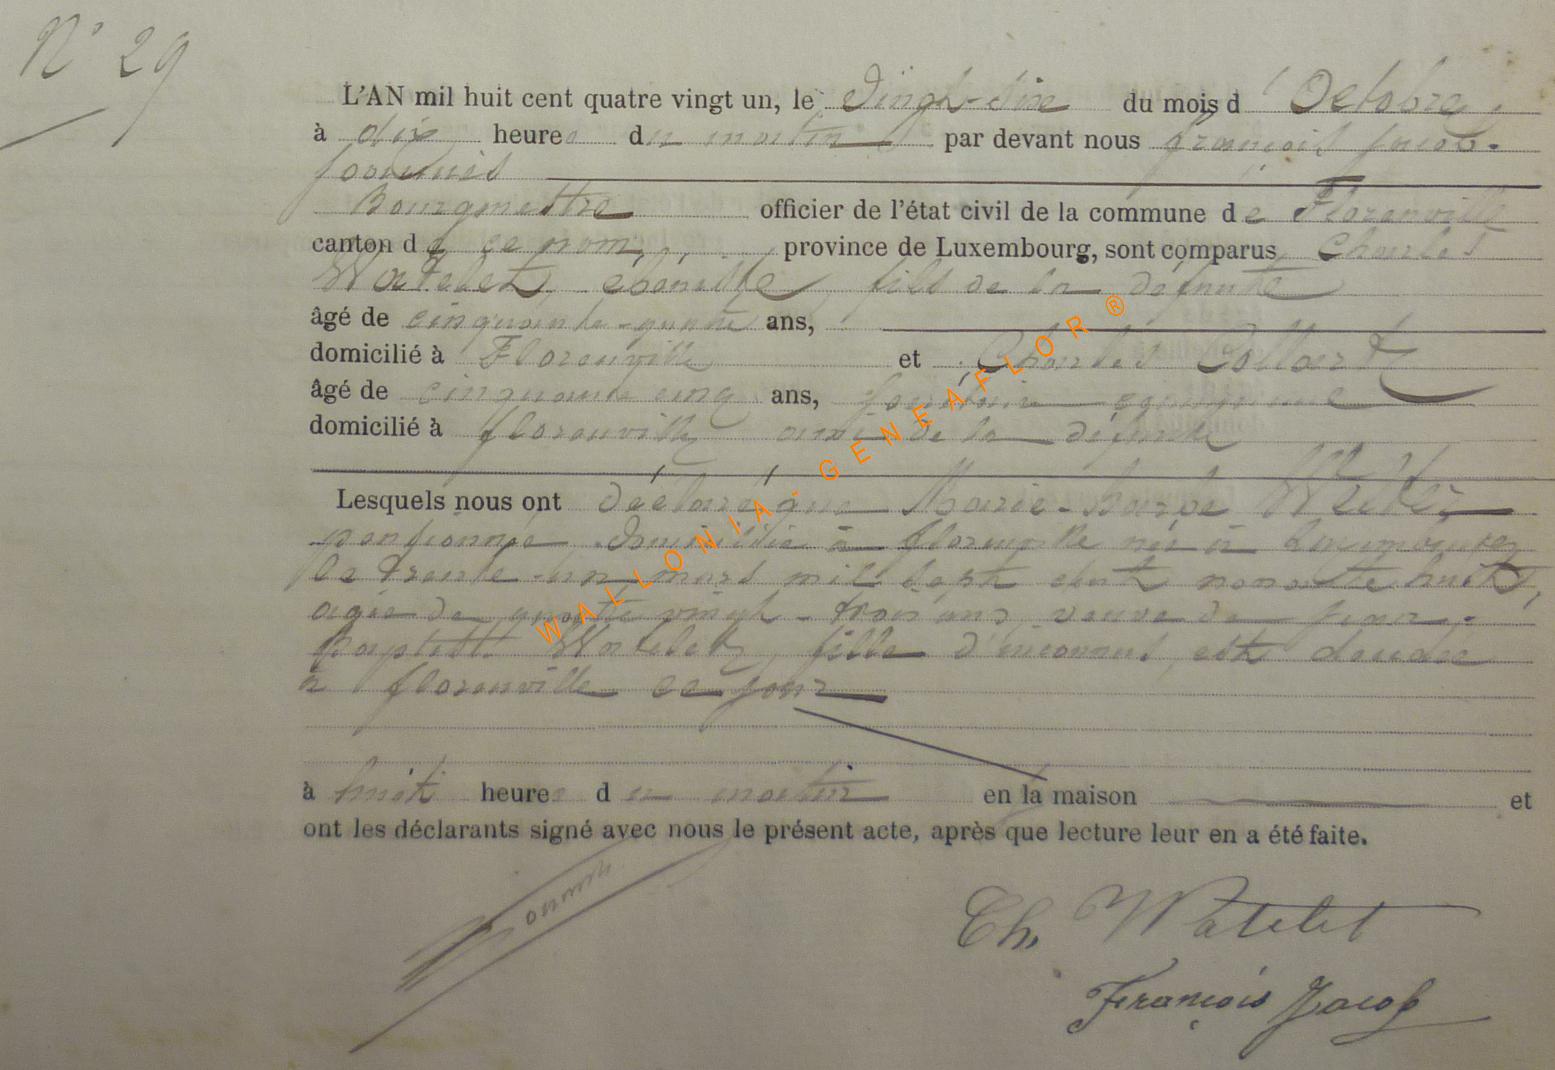 N° 29
L'AN mil huit cent quatre vingt un, le Vingt-Six du mois d' Octobre,
à dix heures du matin par devant nous françois Jacob
Bourgmestre officier de l'état civil de la commune de Florenville
canton de ce nom, province de Luxembourg, sont comparus Charles
Watelet, ébéniste, fils de la défunte
âgé de cinquante-quatre ans,
domicilié à Florenville et Charles Collart
âgé de cinquante cinq ans,
domicilié à florenville ami de la défunte
Lesquels nous ont déclaré que Marie-Barbe
pensionnée domiciliée à florenville née à Luxembourg
le trente-un mars mil sept cent nonante huit,
agée de quatre vingt-trois ans, veuve de Jean-
Baptiste Watelet, fille d'inconnus, est décédée
à florenville ce jour
à huit heures du matin en la maison et
ont les déclarants signé avec nous le présent acte, après que lecture leur en a été faite.
Ch. Watelet
François Jacob
WALLONIA-GENEAFLOR ®